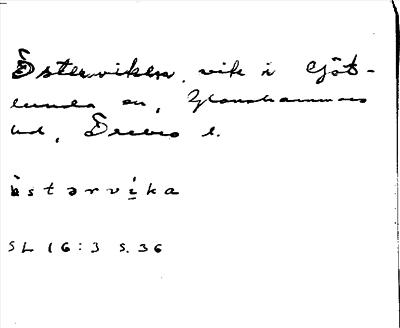 Österviken, vik i Götlunda sn, Glanshammars hd, Örebro l.
östərvika
SL 16:3 s. 36